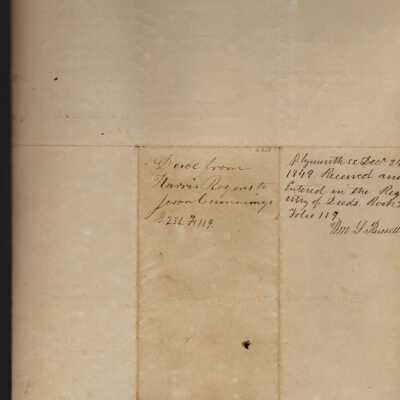 Deed from
Harris Rogers to
Jason Cummings
B 236 F 119.
Plymouth ss. Decr 2
1849. Received and
Entered in the Reg
istry of Deeds. Book
Folio 119
Wm S Russell